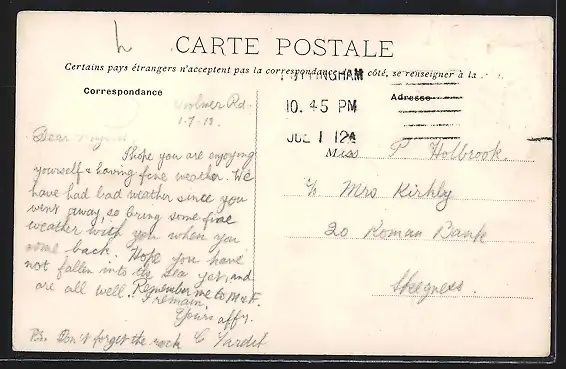 CARTE POSTALE
Certains pays étrangers n'acceptent pas la correspondance de ce côté, se renseigner à la
Correspondance
Rd.
1-7-12.
Dear
I hope you are enjoying
yourself & having fine weather. We
have had bad weather since you
went away, so bring some fine
weather with you when you
come back. Hope you have
not fallen into the sea yet, and
are all well. Remember me to M & F.
I remain,
Yours affy.
P.S. Don't forget the rock C
NOTTINGHAM
10.45 PM
JUL 1 12
Adresse
Miss P Holbrook.
c/o Mrs Kirkly
20 Roman Bank
Skegness.